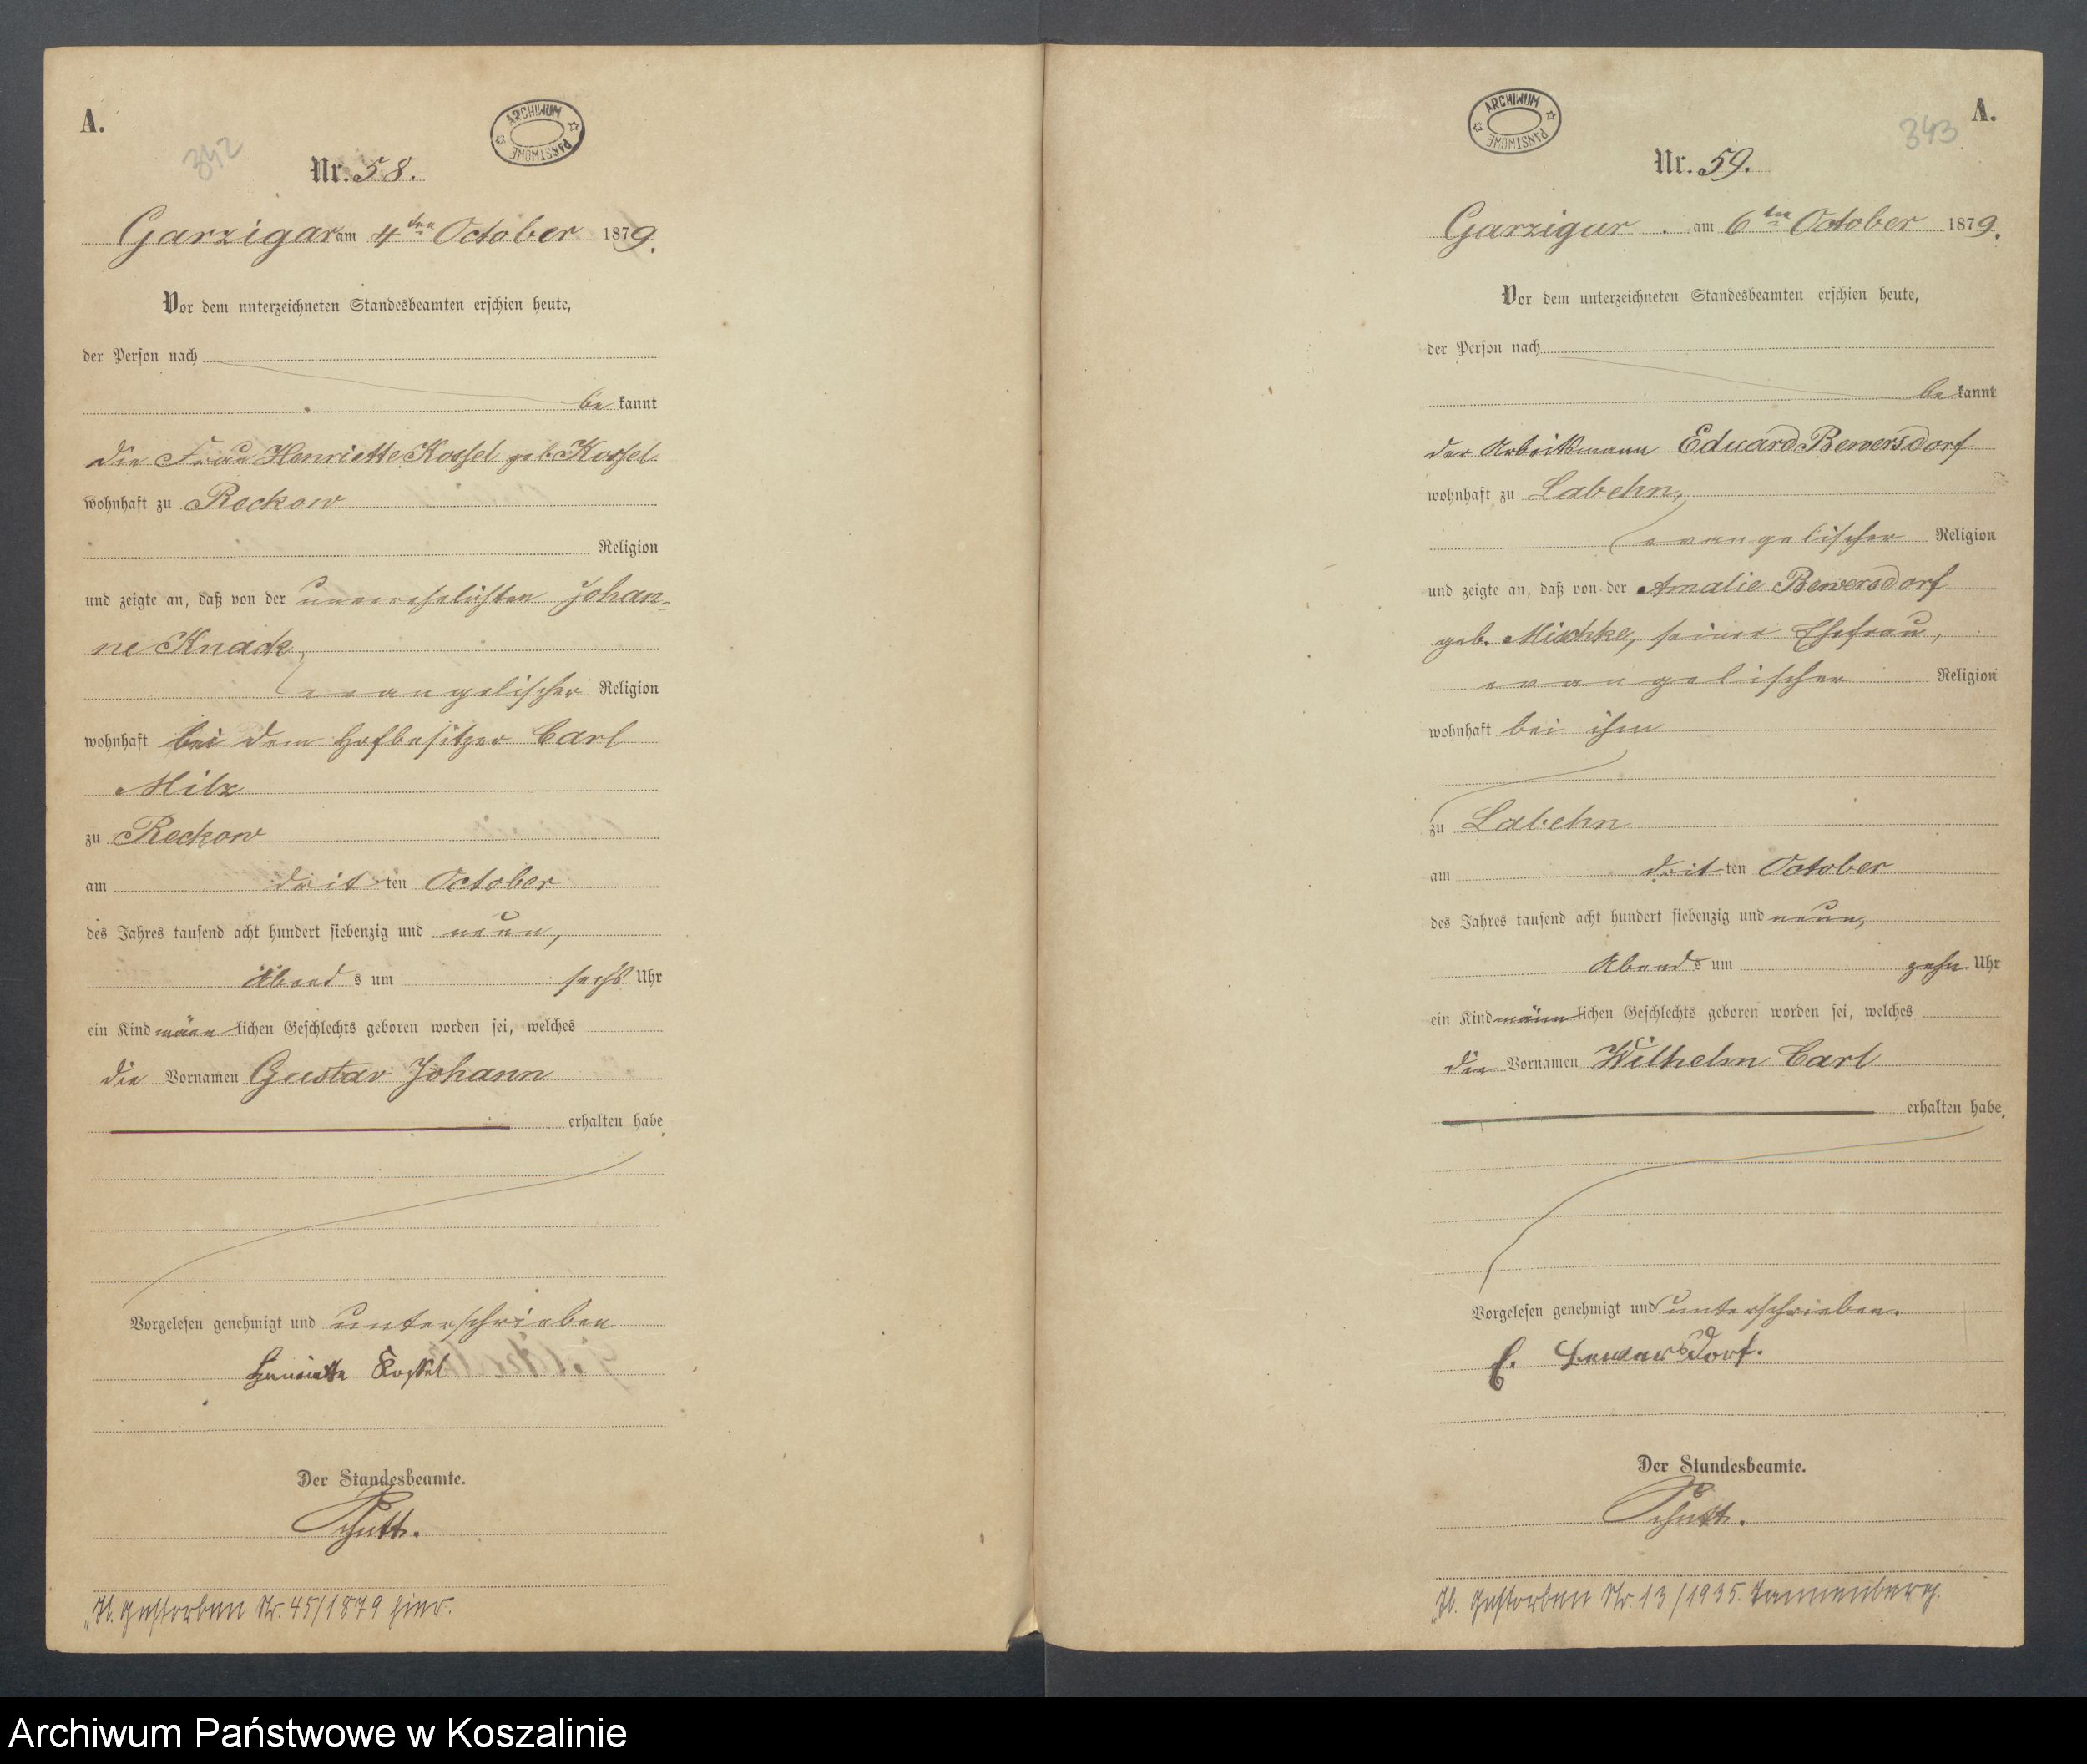 A.
342
ARCHIWUM PAŃSTWOWE
Nr. 58.
Garzigar am 4ten October 1879.
Vor dem unterzeichneten Standesbeamten erschien heute,
der Person nach
be kannt
die Frau Henriette Kossel geb. Kossel
wohnhaft zu Reckow
Religion
und zeigte an, daß von der unverehelichten Johan-
ne Knack,
evangelischer Religion
wohnhaft bei dem Hofbesitzer Carl
Milz
zu Reckow
am dritten October
des Jahres tausend acht hundert siebenzig und neun,
Abends um sechs Uhr
ein Kind männlichen Geschlechts geboren worden sei, welches
die Vornamen Gustav Johann
erhalten habe.
Vorgelesen genehmigt und unterschrieben
Henriette Kossel
Der Standesbeamte.
Schütt.
„H. Gestorben Nr. 45/1879 hier.
A.
343
ARCHIWUM PAŃSTWOWE
Nr. 59.
Garzigar. am 6ten October 1879.
Vor dem unterzeichneten Standesbeamten erschien heute,
der Person nach
be kannt
der Arbeitsmann Eduard Bewersdorf
wohnhaft zu Labehn,
evangelischer Religion
und zeigte an, daß von der Amalie Bewersdorf
geb. Mischke, seiner Ehefrau,
evangelischer Religion
wohnhaft bei ihm
zu Labehn
am dritten October
des Jahres tausend acht hundert siebenzig und neun,
Abends um zehn Uhr
ein Kind männlichen Geschlechts geboren worden sei, welches
die Vornamen Wilhelm Carl
erhalten habe.
Vorgelesen genehmigt und unterschrieben.
E. Bewersdorf.
Der Standesbeamte.
Schütt.
„H. Gestorben Nr. 13/1935. Tannenberg.
Archiwum Państwowe w Koszalinie